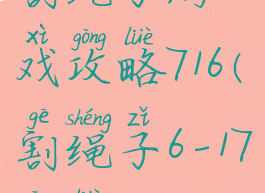 xì gōng lüè
戏攻略716(
gē shéng zǐ
割绳子6-17